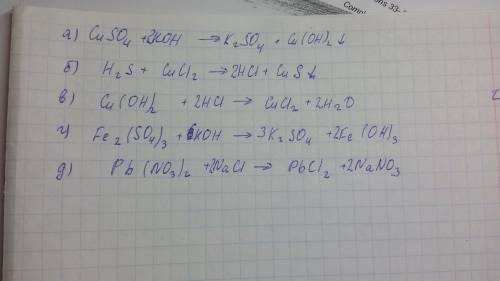 ons 33-
Compl
а) CuSO4 + 2KOH → K2SO4 + Cu(OH)2 ↓
б) H2S + CuCl2 → 2HCl + CuS ↓
в) Cu(OH)2 + 2HCl → CuCl2 + 2H2O
г) Fe2(SO4)3 + 6KOH → 3K2SO4 + 2Fe(OH)3
д) Pb(NO3)2 + 2NaCl → PbCl2 + 2NaNO3